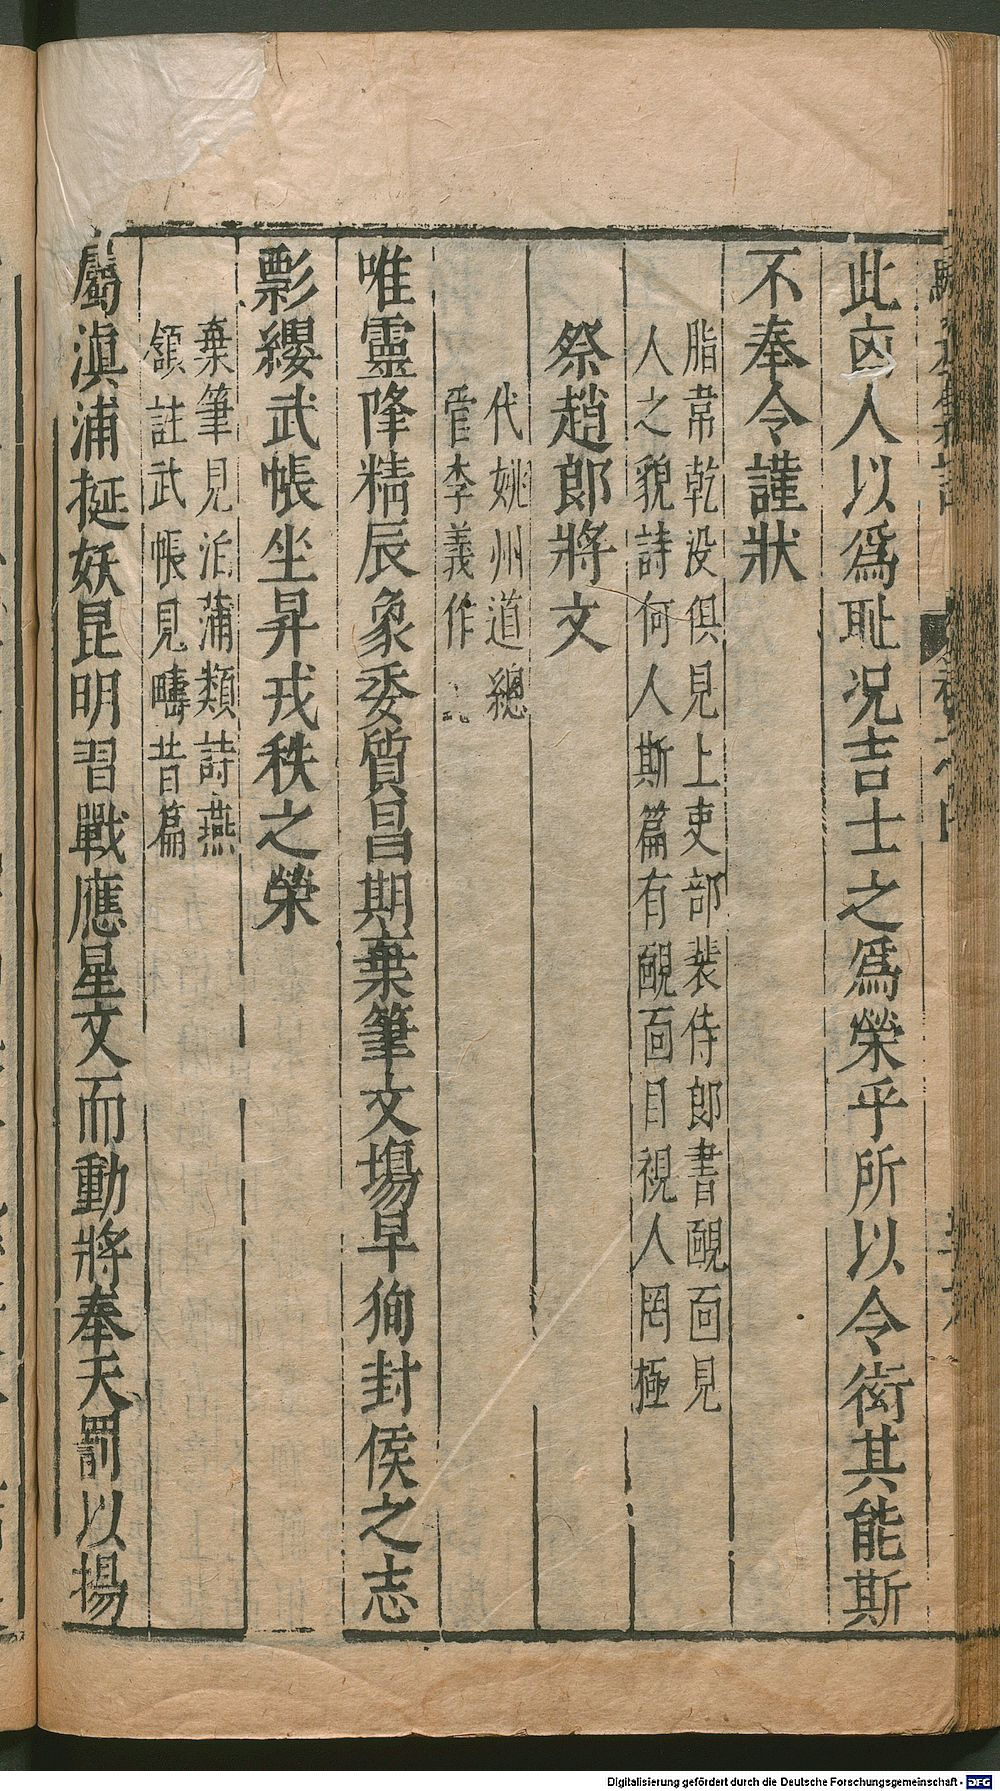 此凶人以爲恥况吉士之爲榮乎所以令衒其能斯
不奉令謹狀
脂韋乾没俱見上吏部裴侍郎書靦面見
人之貌詩何人斯篇有靦面目視人罔極
祭趙郎將文
代姚州道總
管李義作
唯靈降精辰象委質昌期棄筆文場早徇封侯之志
影纓武帳坐昇戎秩之榮
棄筆見泊蒲類詩燕
頷註武帳見疇昔篇
屬滇浦挻妖昆明習戰應星文而動將奉天罰以揚
Digitalisierung gefördert durch die Deutsche Forschungsgemeinschaft - DFG